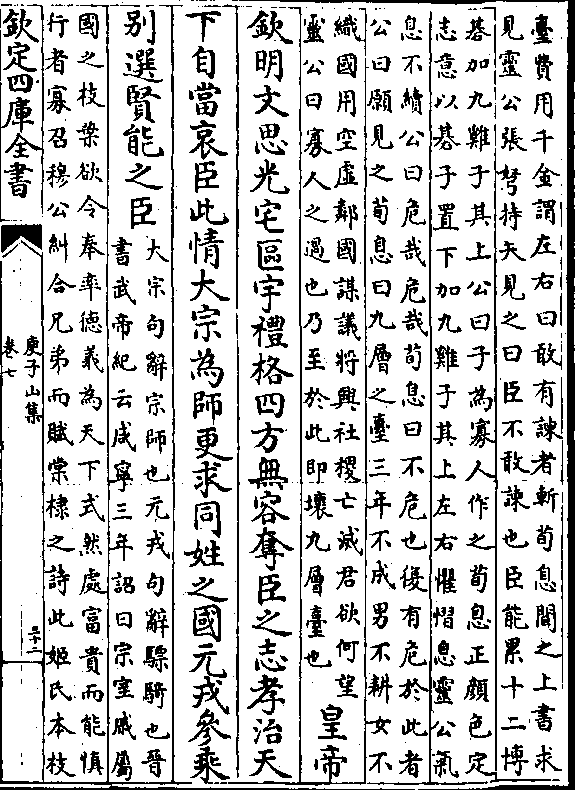 臺費用千金謂左右曰敢有諫者斬荀息聞之上書求
見靈公張弩持矢見之曰臣不敢諫也臣能累十二博
棊加九雞子其上公曰子為寡人作之荀息正顔色定
志意以棊子置下加九雞子其上左右懼慴息靈公氣
息不續公曰危哉危哉荀息曰不危也復有危於此者
公曰願見之荀息曰九層之臺三年不成男不耕女不
織國用空虛鄰國謀議將興社稷亡滅君欲何望
靈公曰寡人之過也乃至於此即壞九層臺也
皇帝
欽明文思光宅區宇禮格四方無容奪臣之志孝治天
下自當哀臣此情大宗為師更求同姓之國元戎參乘
别選賢能之臣
大宗句辭宗師也元戎句辭驃騎也晉
書武帝紀云咸寧三年詔曰宗室戚屬
國之枝葉欲令奉率德義為天下式然處富貴而能慎
行者寡召穆公糾合兄弟而賦棠棣之詩此姬氏本枝
欽定四庫全書
庾子山集
卷七